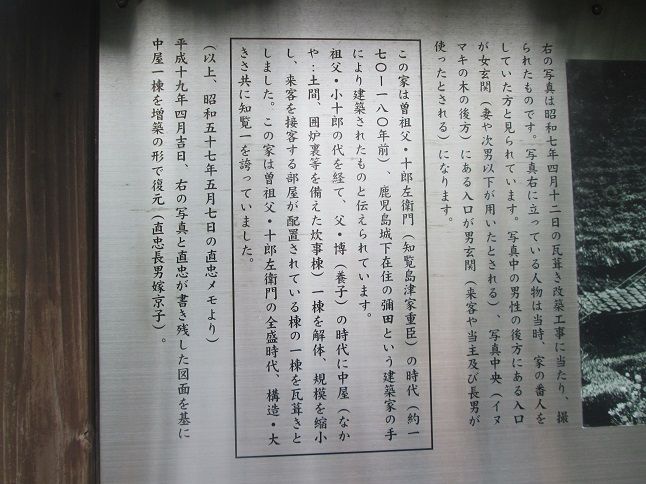 右の写真は昭和七年四月十二日の瓦葺き改築工事に当たり、撮
られたものです。写真右に立っている人物は当時、家の番人を
していた方と見られています。写真中の男性の後方にある入口
が女玄関（妻や次男以下が用いたとされる）、写真中央（イヌ
マキの木の後方）にある入口が男玄関（来客や当主及び長男が
使ったとされる）になります。
この家は曽祖父・十郎左衛門（知覧島津家重臣）の時代（約一
七〇－一八〇年前）、鹿児島城下在住の彌田という建築家の手
により建築されたものと伝えられています。
祖父・小十郎の代を経て、父・博（養子）の時代に中屋（なか
や：土間、囲炉裏等を備えた炊事棟）一棟を解体、規模を縮小
し、来客を接客する部屋が配置されている棟の一棟を瓦葺きと
しました。この家は曽祖父・十郎左衛門の全盛時代、構造・大
きさ共に知覧一を誇っていました。
（以上、昭和五十七年五月七日の直忠メモより）
平成十九年四月吉日、右の写真と直忠が書き残した図面を基に
中屋一棟を増築の形で復元（直忠長男嫁京子）。